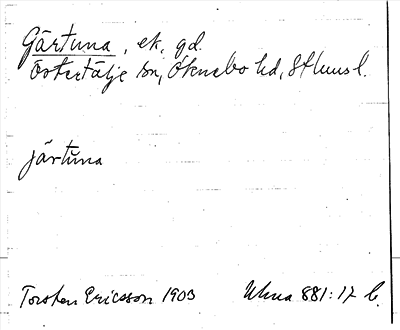 Gärtuna, ek. gd.
Östertälje sn, Öknebo hd, Sthms l.
järtuna
Torsten Ericsson 1903 Uhna 881:17 b.